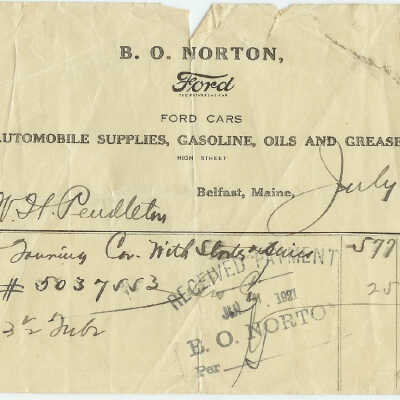 B. O. NORTON,
Ford
THE UNIVERSAL CAR
FORD CARS
AUTOMOBILE SUPPLIES, GASOLINE, OILS AND GREASE
HIGH STREET
Belfast, Maine, July
W. H. Pendleton
Touring Car With Starter 577
# 5037553 25
RECEIVED PAYMENT
1921
B. O. NORTO
Per
3 1/2